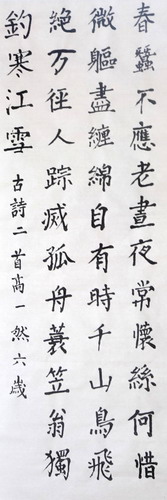 春蠶不應老晝夜常懷絲何惜
微軀盡纏綿自有時千山鳥飛
絕万径人踪滅孤舟蓑笠翁獨
釣寒江雪 古詩二首高一然六歲